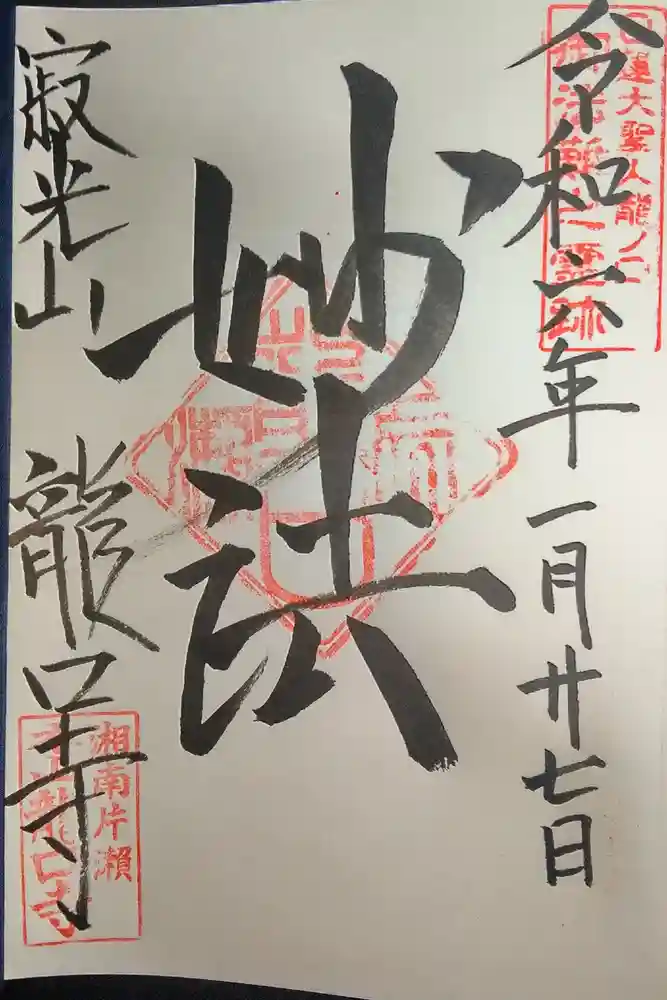 日蓮大聖人龍ノ口
御法難之霊跡
令和六年一月廿七日
妙法
寂光山 龍口寺
湘南片瀬
龍口寺